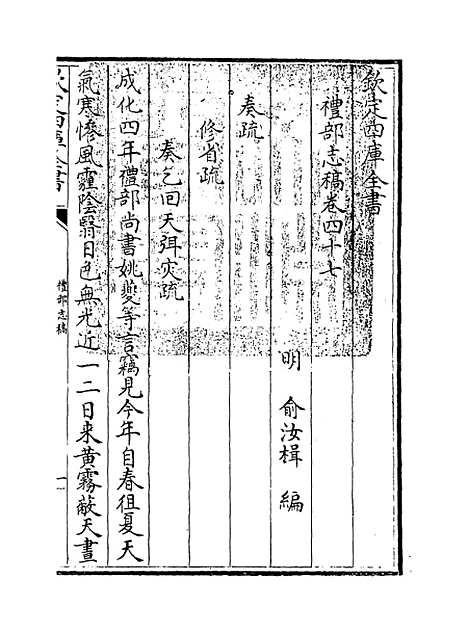 欽定四庫全書
禮部志稿卷四十七
明 俞汝楫 編
奏疏
修省疏
奏乞回天弭灾疏
成化四年禮部尚書姚夔等言竊見今年自春徂夏天
氣寒慘風霾陰翳日色無光近一二日来黄霧蔽天晝
欽定四庫全書
禮部志稿
一